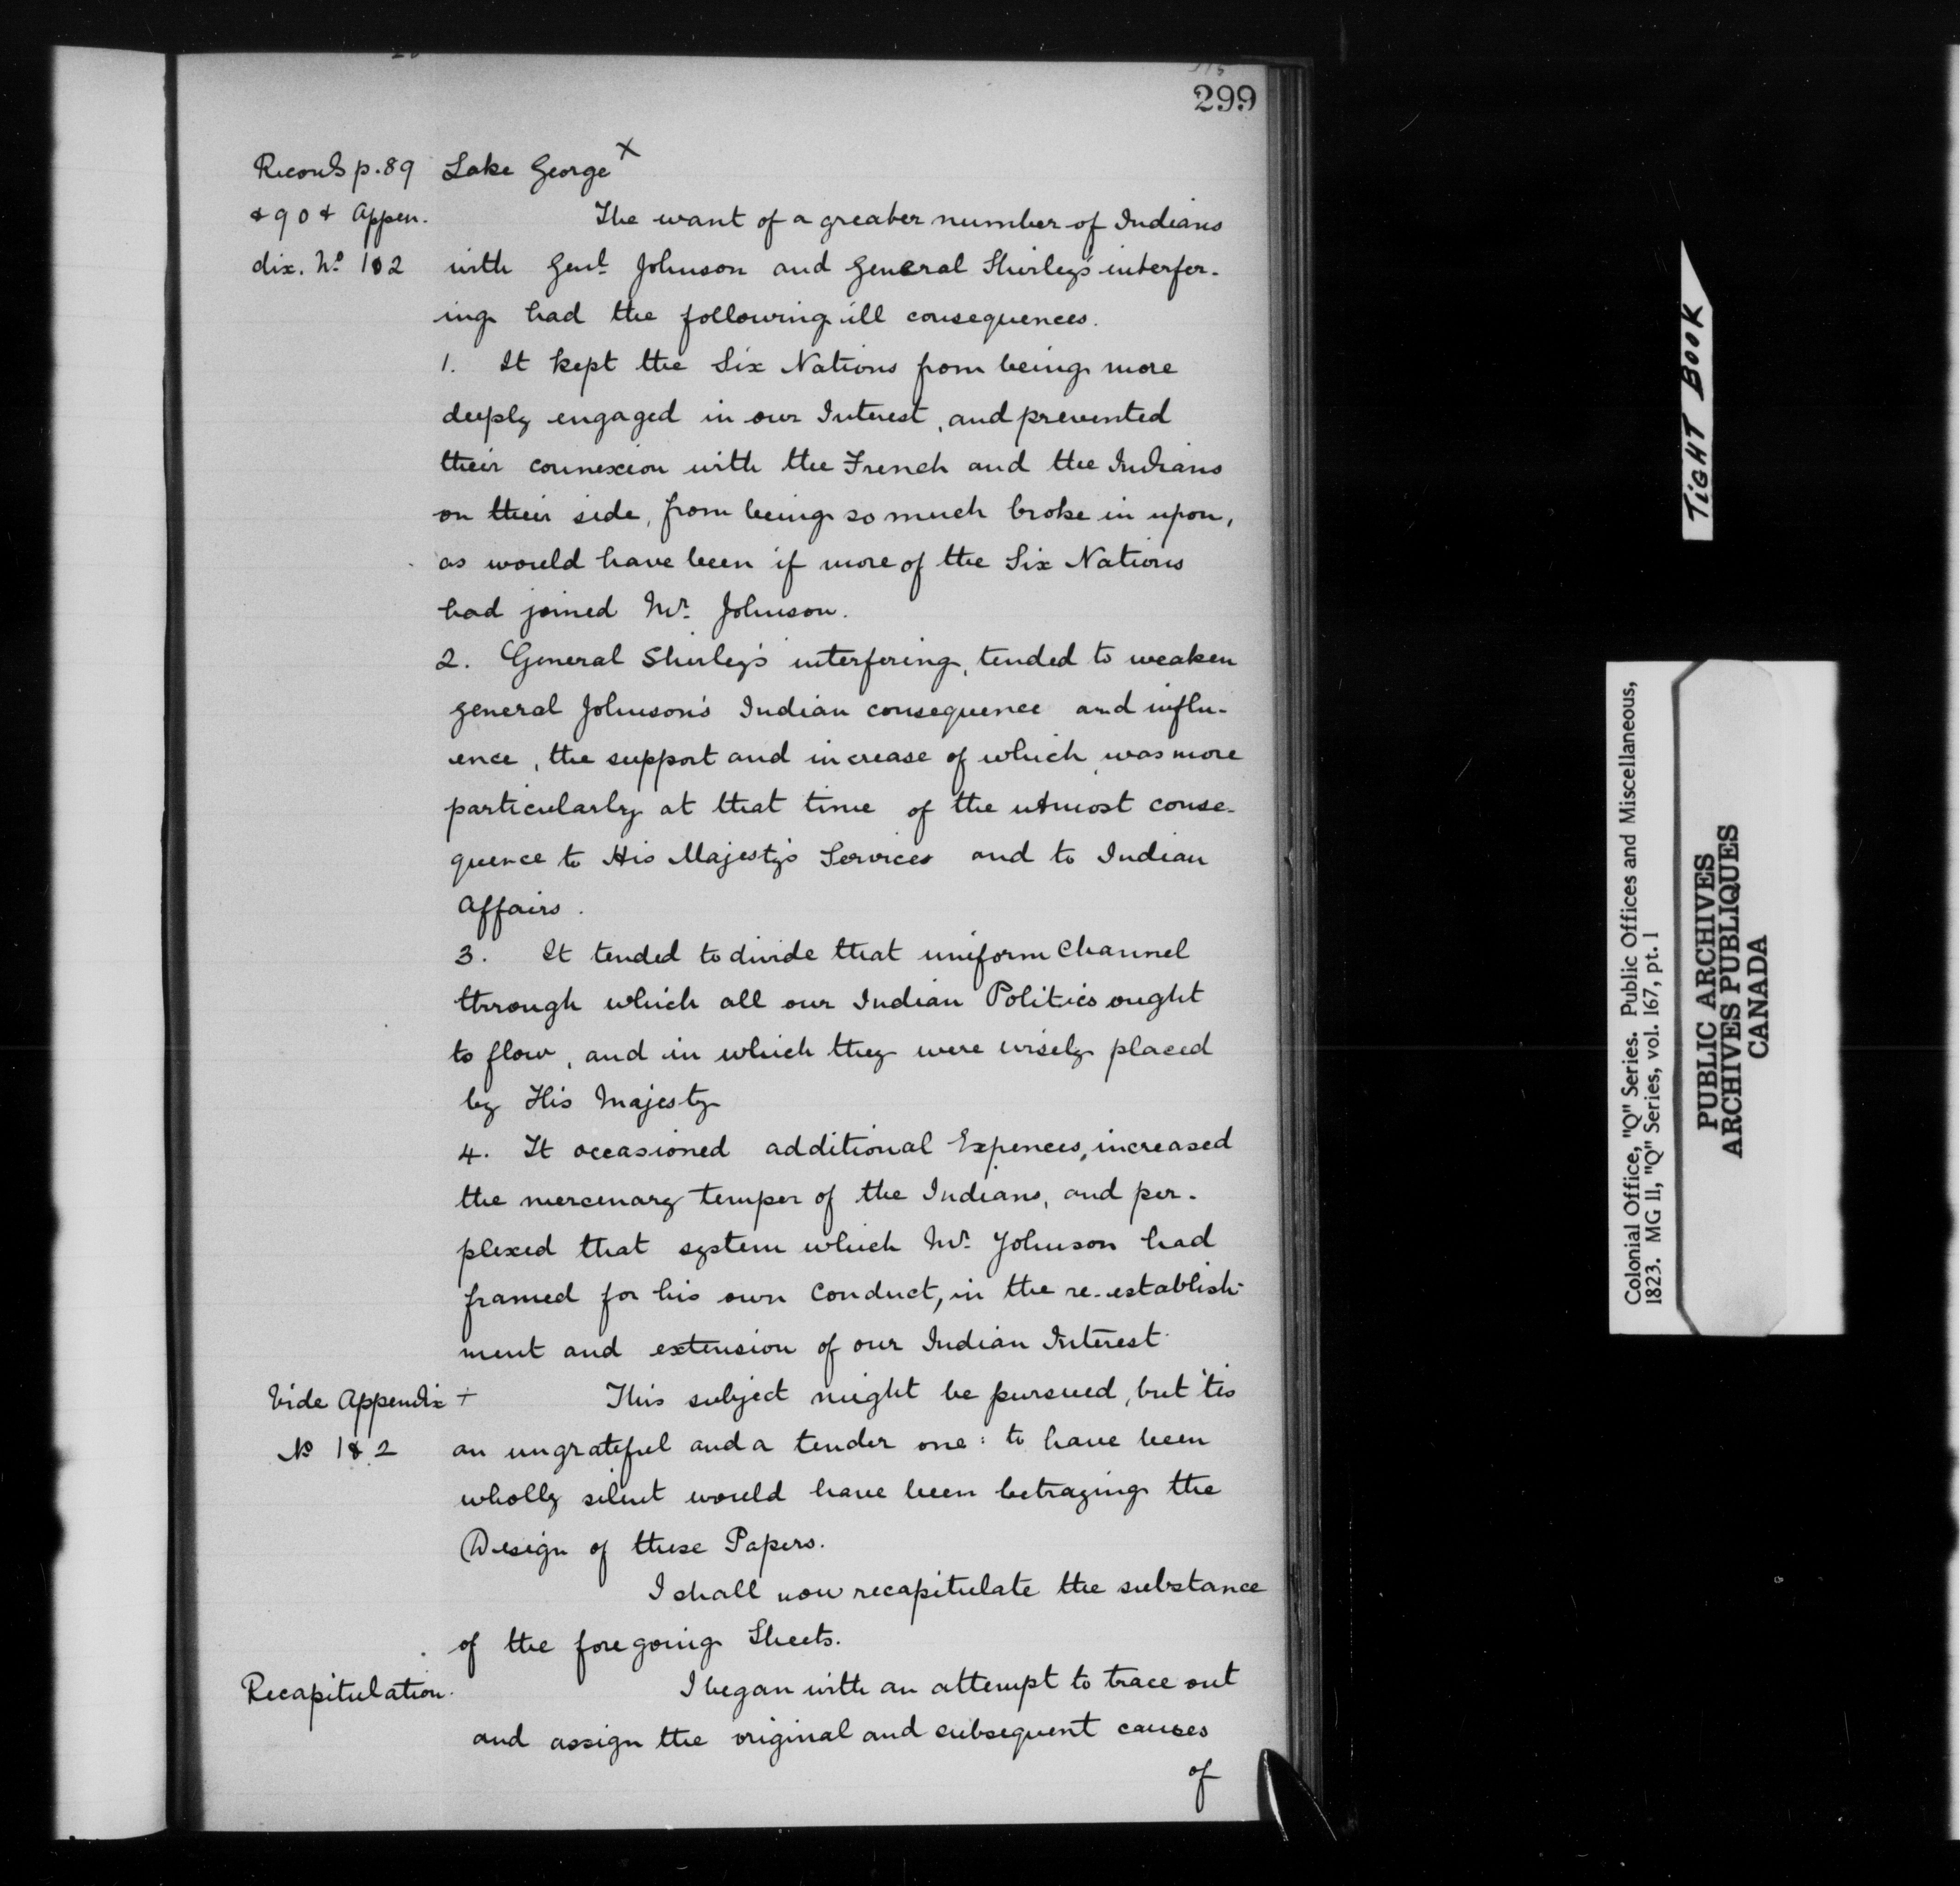 299
Records p. 89 Lake George x
& 90 & Appen. The want of a greater number of Indians
dix. No. 1&2 with Genl. Johnson and General Shirley's interfer-
ing had the following ill consequences.
1. It kept the Six Nations from being more
deeply engaged in our Interest, and prevented
their connexion with the French and the Indians
on their side, from being so much broke in upon,
as would have been if more of the Six Nations
had joined Mr. Johnson.
2. General Shirley's interfering, tended to weaken
general Johnson's Indian consequence and influ-
ence, the support and increase of which, was more
particularly at that time of the utmost conse-
quence to His Majesty's Services and to Indian
Affairs.
3. It tended to divide that uniform Channel
through which all our Indian Politics ought
to flow, and in which they were wisely placed
by His Majesty
4. It occasioned additional Expences, increased
the mercenary temper of the Indians, and per-
plexed that system which Mr. Johnson had
framed for his own Conduct, in the re-establish-
ment and extension of our Indian Interest.
Vide Appendix + This subject might be pursued, but 'tis
No 1 & 2 an ungrateful and a tender one: to have been
wholly silent would have been betraying the
Design of these Papers.
I shall now recapitulate the substance
of the foregoing Sheets.
Recapitulation. I began with an attempt to trace out
and assign the original and subsequent causes
of
TIGHT BOOK
Colonial Office, "Q" Series. Public Offices and Miscellaneous,
1823. MG 11, "Q" Series, vol. 167, pt. 1
PUBLIC ARCHIVES
ARCHIVES PUBLIQUES
CANADA